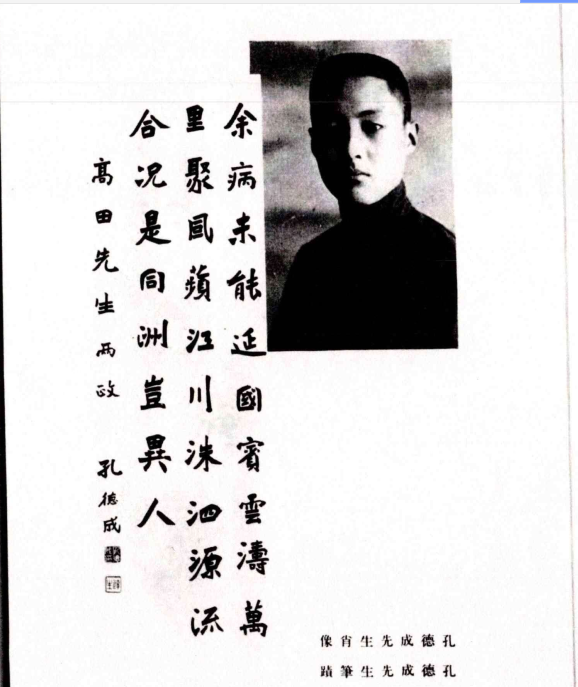 余病未能延國賓雲濤萬
里聚凬蘋江川洙泗源流
合况是同洲豈異人
高田先生两政 孔德成
孔德成先生肖像
孔德成先生筆蹟